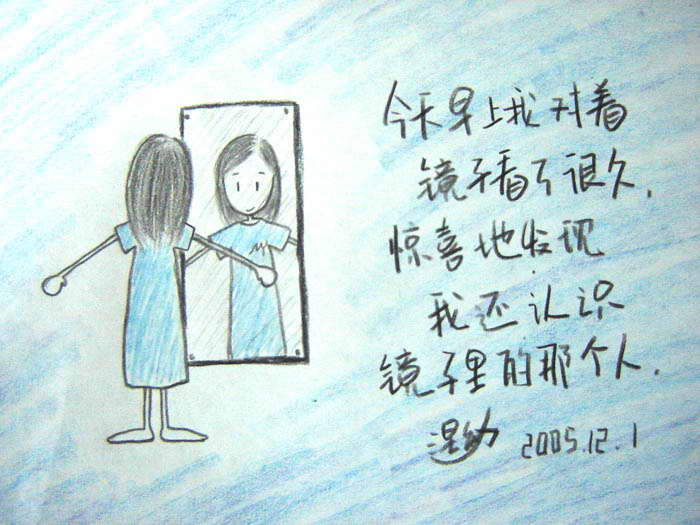 今天早上我对着
镜子看了很久，
惊喜地发现
我还认识
镜子里的那个人．
2005.12.1